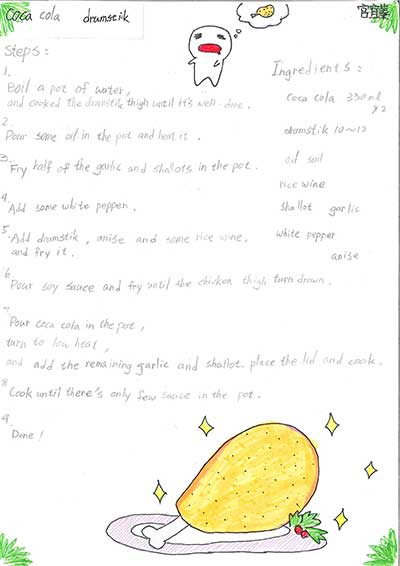 coca cola dramstik
宮宜蓁
Steps :
1.
Boil a pot of water,
and cooked the dramstik thigh until it's well-done.
2.
Pour some oil in the pot and heat it .
3.
Fry half of the garlic and shallots in the pot.
4.
Add some white pepper .
5.
Add dramstik , anise and some rice wine,
and fry it .
6.
Pour soy sauce and fry until the chicken thigh turn drown.
7.
Pour coca cola in the pot ,
turn to low heat ,
and add the remaining garlic and shallot. place the lid and cook.
8.
Cook until there's only few sauce in the pot .
9.
Done !
Ingredients :
coca cola 330ml
x2
dramstik 10~12
oil soil
rice wine
shallot garlic
white pepper
anise